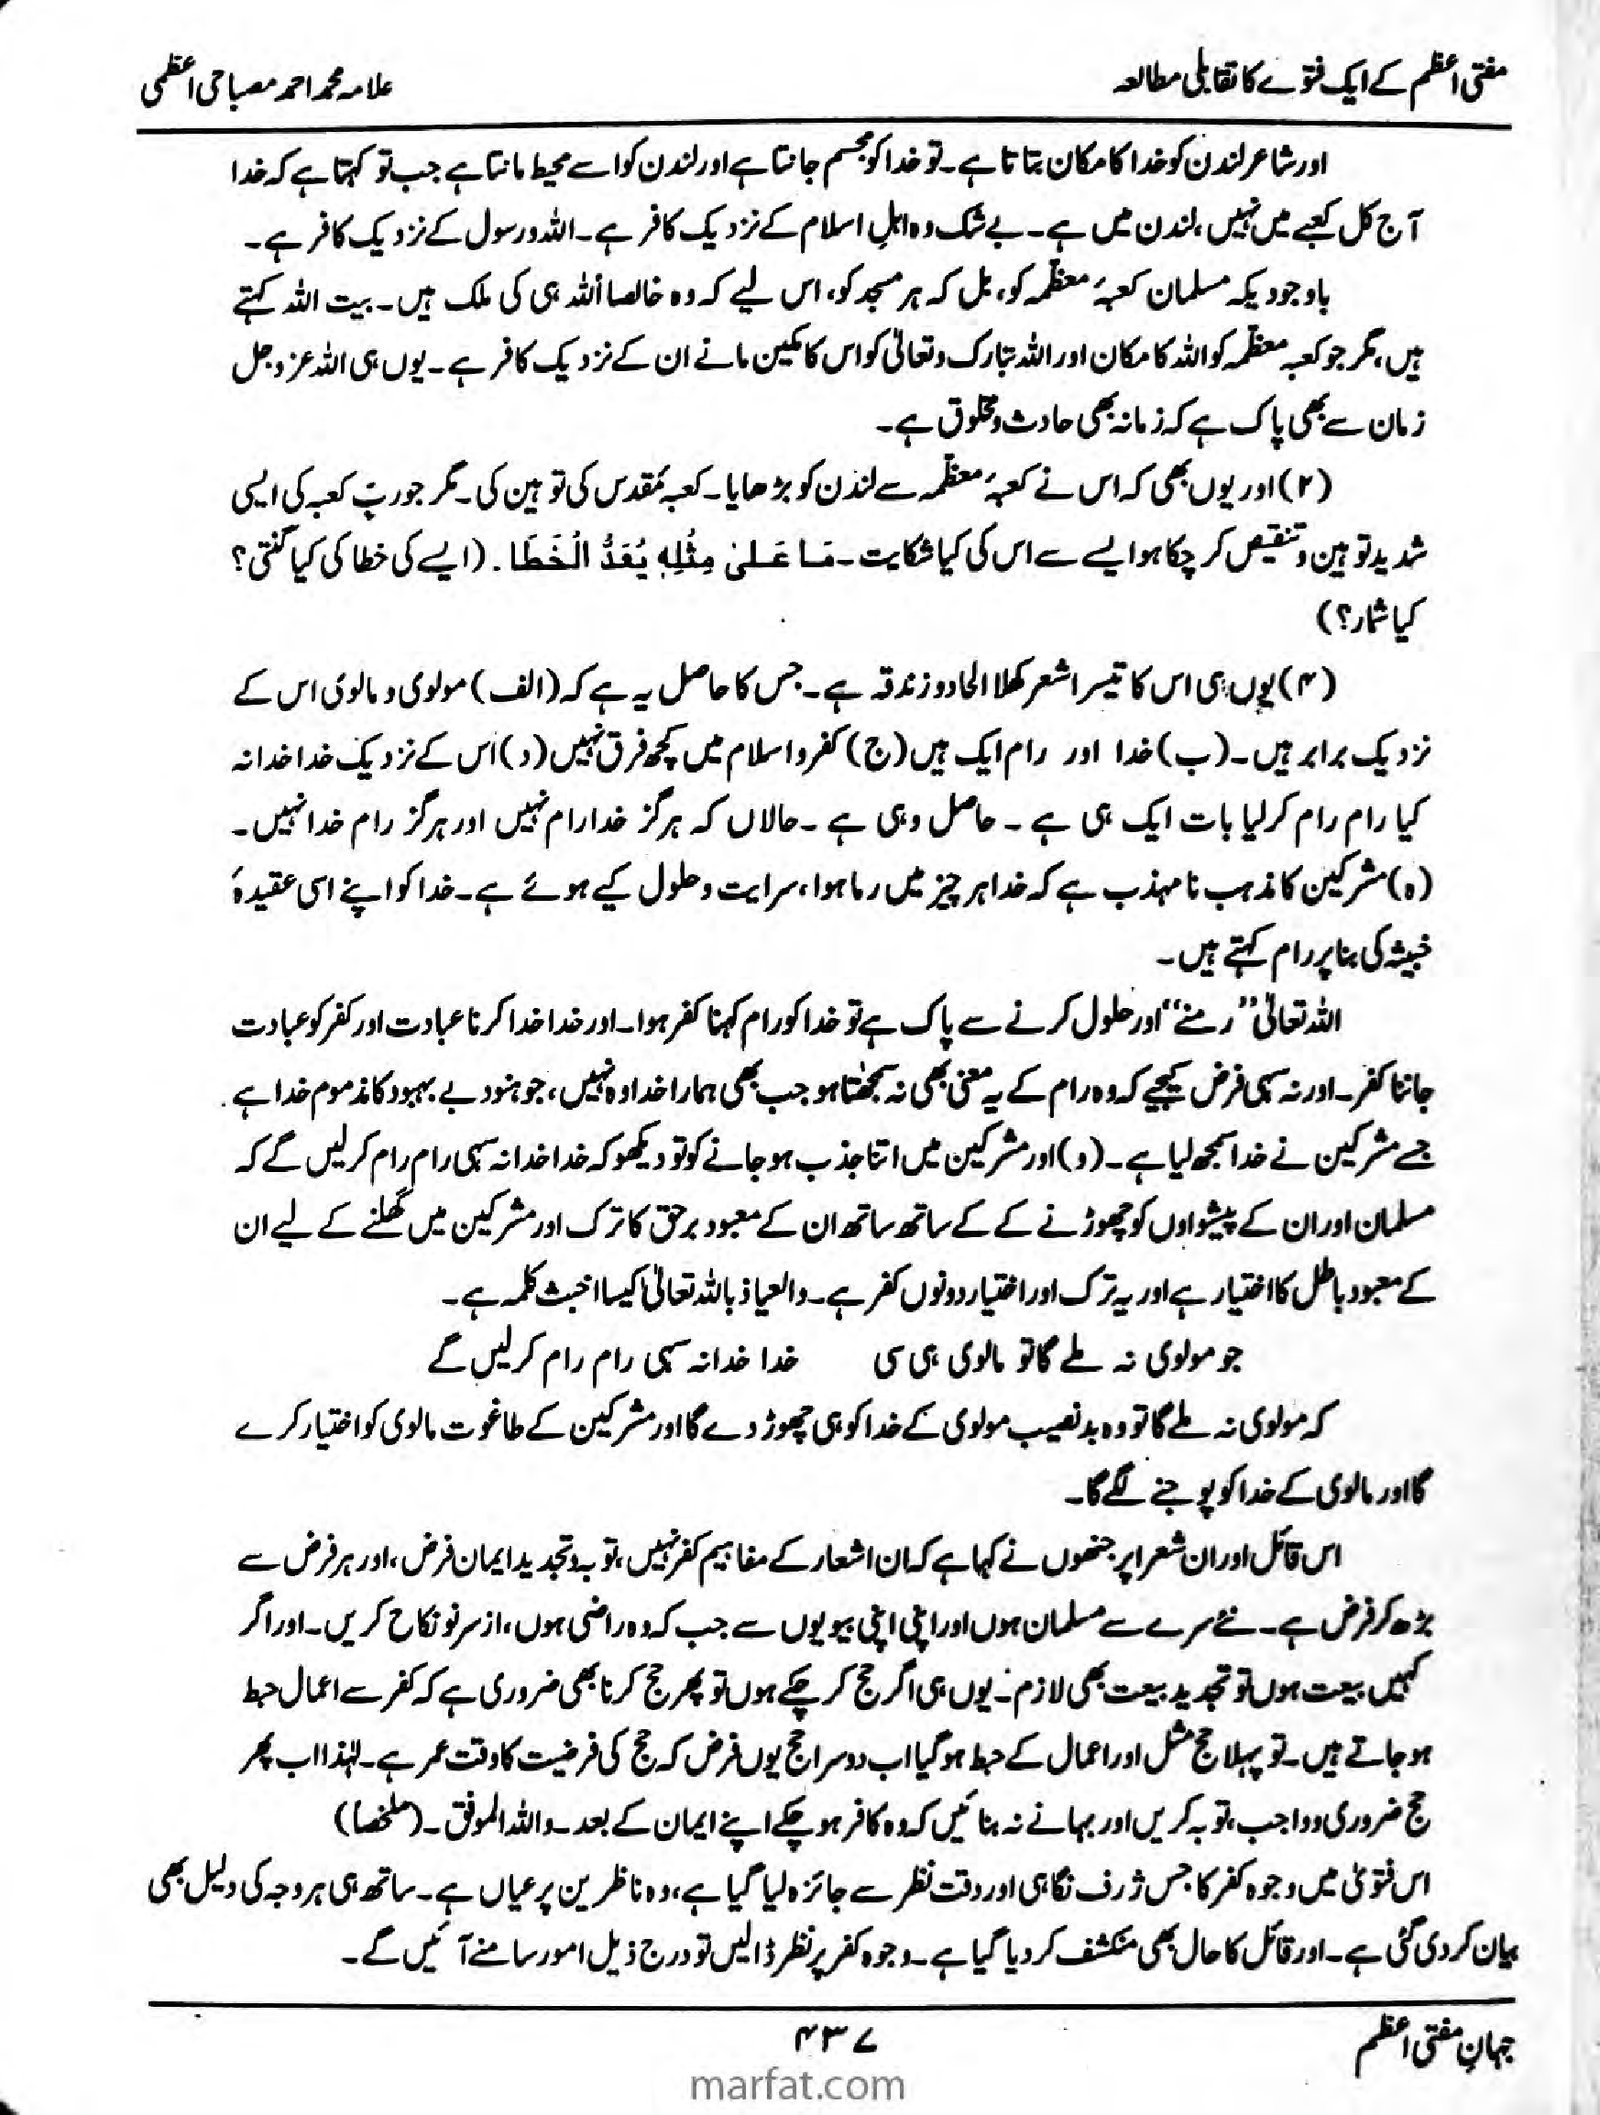 مفتی اعظم کے ایک فتوے کا تقابلی مطالعہ
علامہ محمد احمد مصباحی اعظمی
اور شاعر لندن کو خدا کا مکان بتاتا ہے۔ تو خدا کو مجسم جانتا ہے اور لندن کو اسے محیط مانتا ہے جب تو کہتا ہے کہ خدا
آج کل کعبے میں نہیں، لندن میں ہے۔ بے شک وہ اہلِ اسلام کے نزدیک کافر ہے۔ اللہ و رسول کے نزدیک کافر ہے۔
باوجودیکہ مسلمان کعبۂ معظّمہ کو، بل کہ ہر مسجد کو، اس لیے کہ وہ خالصاً اللہ ہی کی ملک ہیں۔ بیت اللہ کہتے
ہیں، مگر جو کعبہ معظّمہ کو اللہ کا مکان اور اللہ تبارک و تعالیٰ کو اس کا مکین مانے ان کے نزدیک کافر ہے۔ یوں ہی اللہ عز و جل
زمان سے بھی پاک ہے کہ زمانہ بھی حادث و مخلوق ہے۔
(۲) اور یوں بھی کہ اس نے کعبۂ معظّمہ سے لندن کو بڑھایا۔ کعبہ مُقدس کی توہین کی۔ مگر جو ربِّ کعبہ کی ایسی
شدید توہین و تنقیص کر چکا ہو ایسے سے اس کی کیا شکایت۔ مَا عَلیٰ مِثْلِہٖ یُعَدُّ الْخَطَا. (ایسے کی خطا کی کیا گنتی؟
کیا شمار؟)
(۴) یوں ہی اس کا تیسرا شعر کھلا الحاد و زندقہ ہے۔ جس کا حاصل یہ ہے کہ (الف) مولوی و مالوی اس کے
نزدیک برابر ہیں۔ (ب) خدا اور رام ایک ہیں (ج) کفر و اسلام میں کچھ فرق نہیں (د) اس کے نزدیک خدا خدا نہ
کیا رام رام کر لیا بات ایک ہی ہے ۔ حاصل وہی ہے ۔ حالاں کہ ہرگز خدا رام نہیں اور ہرگز رام خدا نہیں۔
(ہ) مشرکین کا مذہب نا مہذب ہے کہ خدا ہر چیز میں رما ہوا، سرایت و حلول کیے ہوئے ہے۔ خدا کو اپنے اسی عقیدۂ
خبیثہ کی بنا پر رام کہتے ہیں۔
اللہ تعالیٰ ’’رمنے‘‘ اور حلول کرنے سے پاک ہے تو خدا کو رام کہنا کفر ہوا۔ اور خدا خدا کرنا عبادت اور کفر کو عبادت
جاننا کفر۔ اور نہ سہی فرض کیجیے کہ وہ رام کے یہ معنی بھی نہ سمجھتا ہو جب بھی ہمارا خدا وہ نہیں، جو ہنود بے بہبود کا مذموم خدا ہے.
جسے مشرکین نے خدا سمجھ لیا ہے۔ (و) اور مشرکین میں اتنا جذب ہو جانے کو تو دیکھو کہ خدا خدا نہ سہی رام رام کر لیں گے کہ
مسلمان اور ان کے پیشواوں کو چھوڑنے کے کے ساتھ ساتھ ان کے معبود برحق کا ترک اور مشرکین میں گھلنے کے لیے ان
کے معبود باطل کا اختیار ہے اور یہ ترک اور اختیار دونوں کفر ہے۔ والعیاذ باللہ تعالیٰ کیسا اخبث کلمہ ہے۔
جو مولوی نہ ملے گا تو مالوی ہی سی خدا خدا نہ سہی رام رام کر لیں گے
کہ مولوی نہ ملے گا تو وہ بد نصیب مولوی کے خدا کو ہی چھوڑ دے گا اور مشرکین کے طاغوت مالوی کو اختیار کرے
گا اور مالوی کے خدا کو پوجنے لگے گا۔
اس قائل اور ان شعرا پر جنھوں نے کہا ہے کہ ان اشعار کے مفاہیم کفر نہیں، توبہ و تجدید ایمان فرض، اور ہر فرض سے
بڑھ کر فرض ہے۔ نئے سرے سے مسلمان ہوں اور اپنی اپنی بیویوں سے جب کہ وہ راضی ہوں، از سر نو نکاح کریں۔ اور اگر
کہیں بیعت ہوں تو تجدید بیعت بھی لازم۔ یوں ہی اگر حج کر چکے ہوں تو پھر حج کرنا بھی ضروری ہے کہ کفر سے اعمال حبط
ہو جاتے ہیں۔ تو پہلا حج مثل اور اعمال کے حبط ہو گیا اب دوسرا حج یوں فرض کہ حج کی فرضیت کا وقت عمر ہے۔ لہٰذا اب پھر
حج ضروری و واجب، توبہ کریں اور بہانے نہ بنائیں کہ وہ کافر ہو چکے اپنے ایمان کے بعد۔ واللہ الموفق۔ (ملخصا)
اس فتویٰ میں وجوہ کفر کا جس ژرف نگاہی اور دقت نظر سے جائزہ لیا گیا ہے، وہ ناظرین پر عیاں ہے۔ ساتھ ہی ہر وجہ کی دلیل بھی
بیان کر دی گئی ہے۔ اور قائل کا حال بھی منکشف کر دیا گیا ہے۔ وجوہ کفر پر نظر ڈالیں تو درج ذیل امور سامنے آئیں گے۔
جہانِ مفتی اعظم
۴۳۷
marfat.com